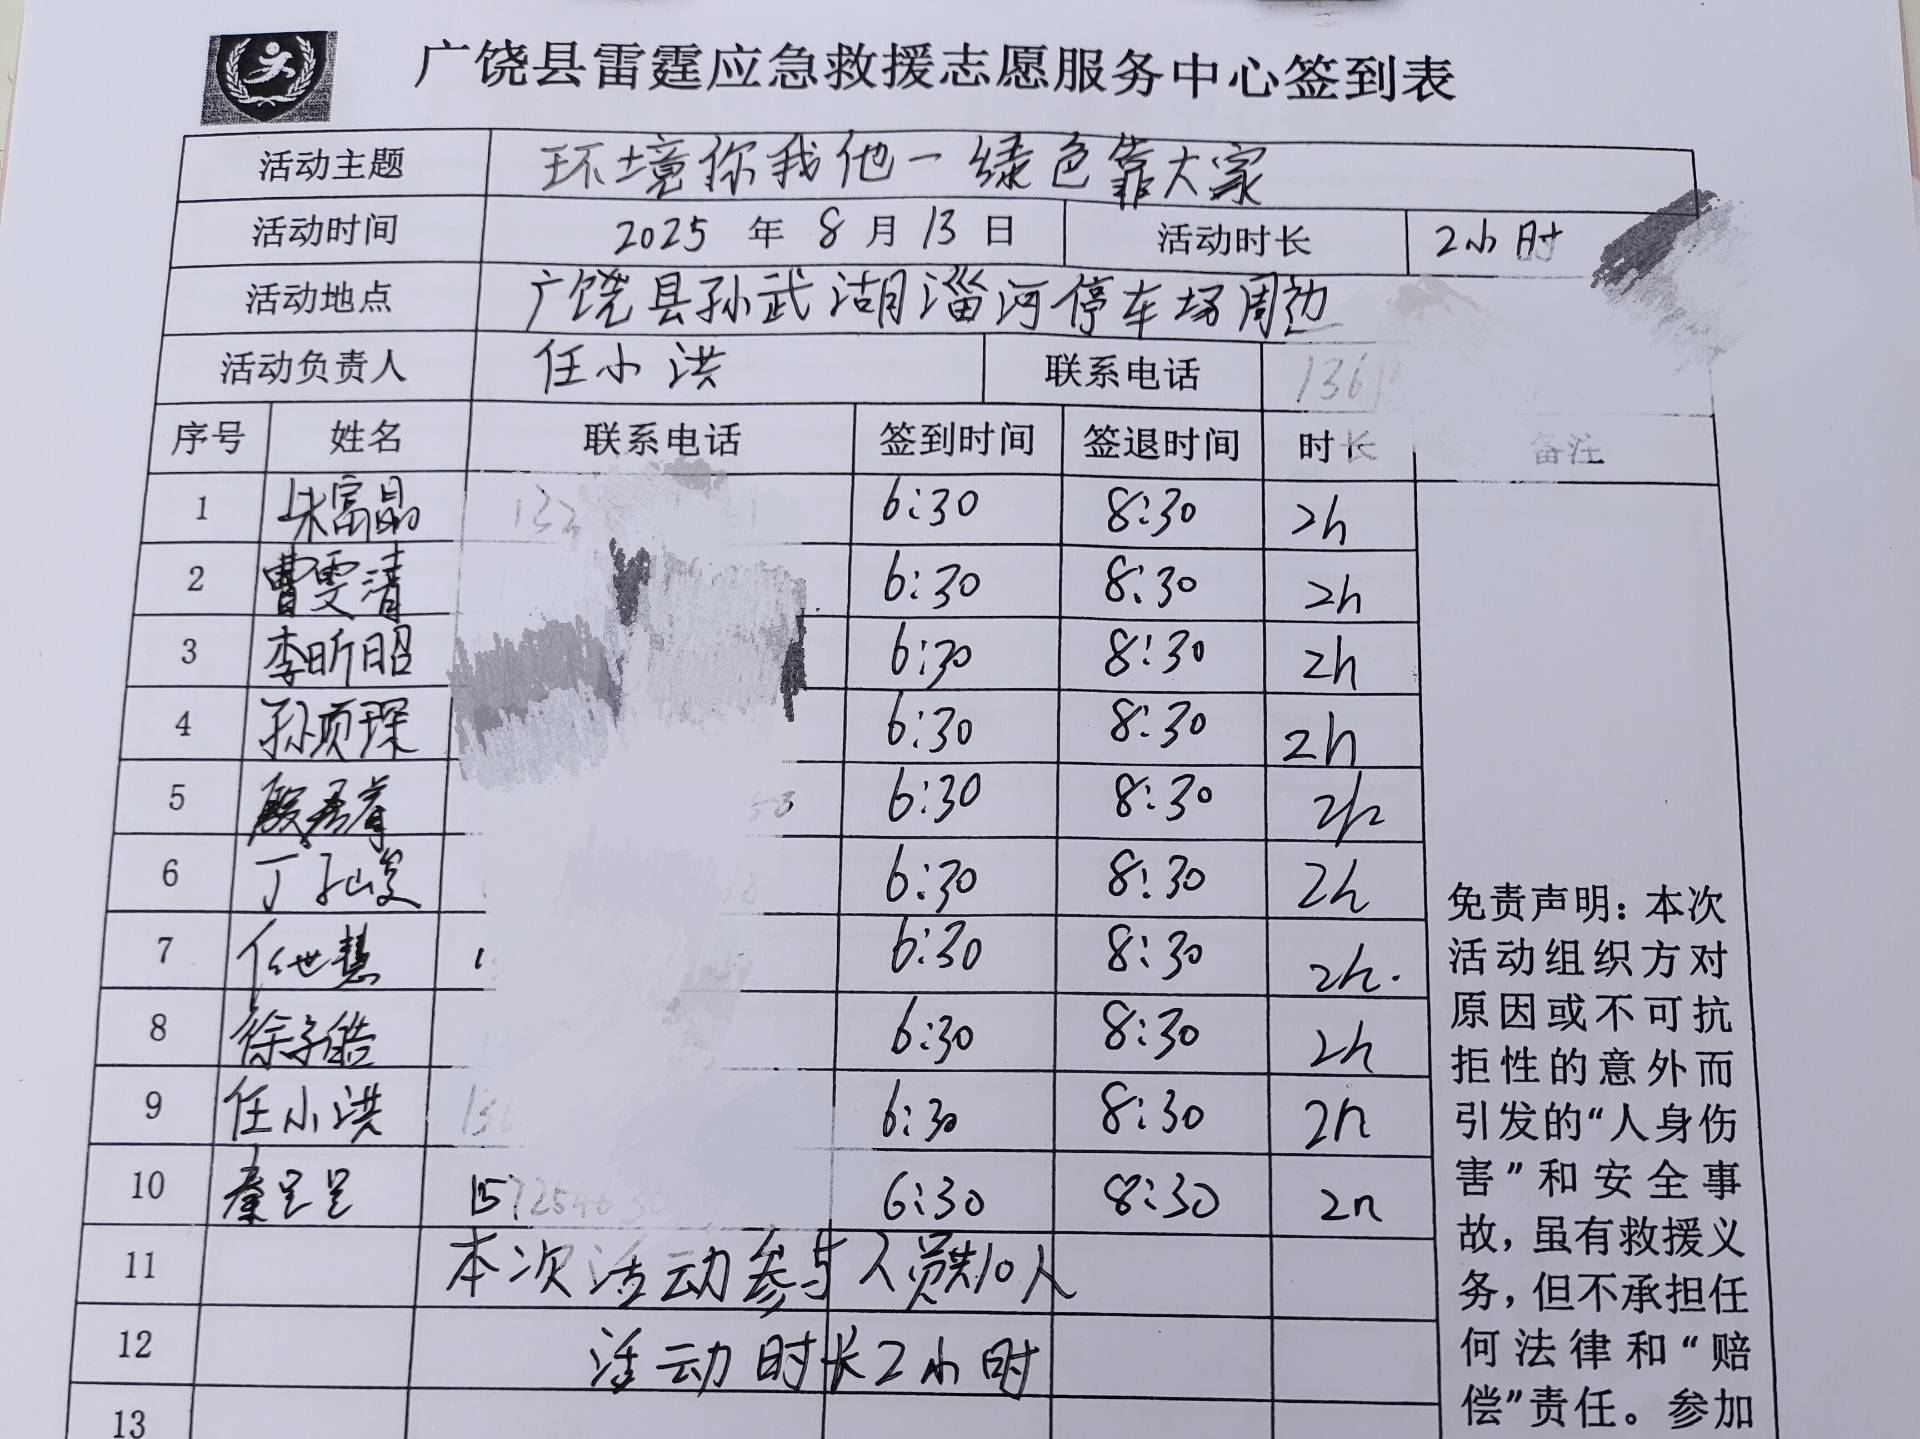 广饶县雷霆应急救援志愿服务中心签到表
活动主题 环境你我他一绿色靠大家
活动时间 2025 年 8 月 13 日 活动时长 2小时
活动地点 广饶县孙武湖淄河停车场周边
活动负责人 任小洪 联系电话 136
序号 姓名 联系电话 签到时间 签退时间 时长 备注
1 朱富晶 132 6:30 8:30 2h
2 曹雯清 6:30 8:30 2h
3 李昕昭 6:30 8:30 2h
4 孙颀琛 6:30 8:30 2h
5 6:30 8:30 2h
6 6:30 8:30 2h
7 任世慧 6:30 8:30 2h.
8 徐子皓 6:30 8:30 2h
9 任小洪 136 6:30 8:30 2h
10 秦呈呈 6:30 8:30 2h
11 本次活动参与人员共10人
12 活动时长2小时
13
免责声明：本次
活动组织方对
原因或不可抗
拒性的意外而
引发的“人身伤
害”和安全事
故，虽有救援义
务，但不承担任
何法律和“赔
偿”责任。参加